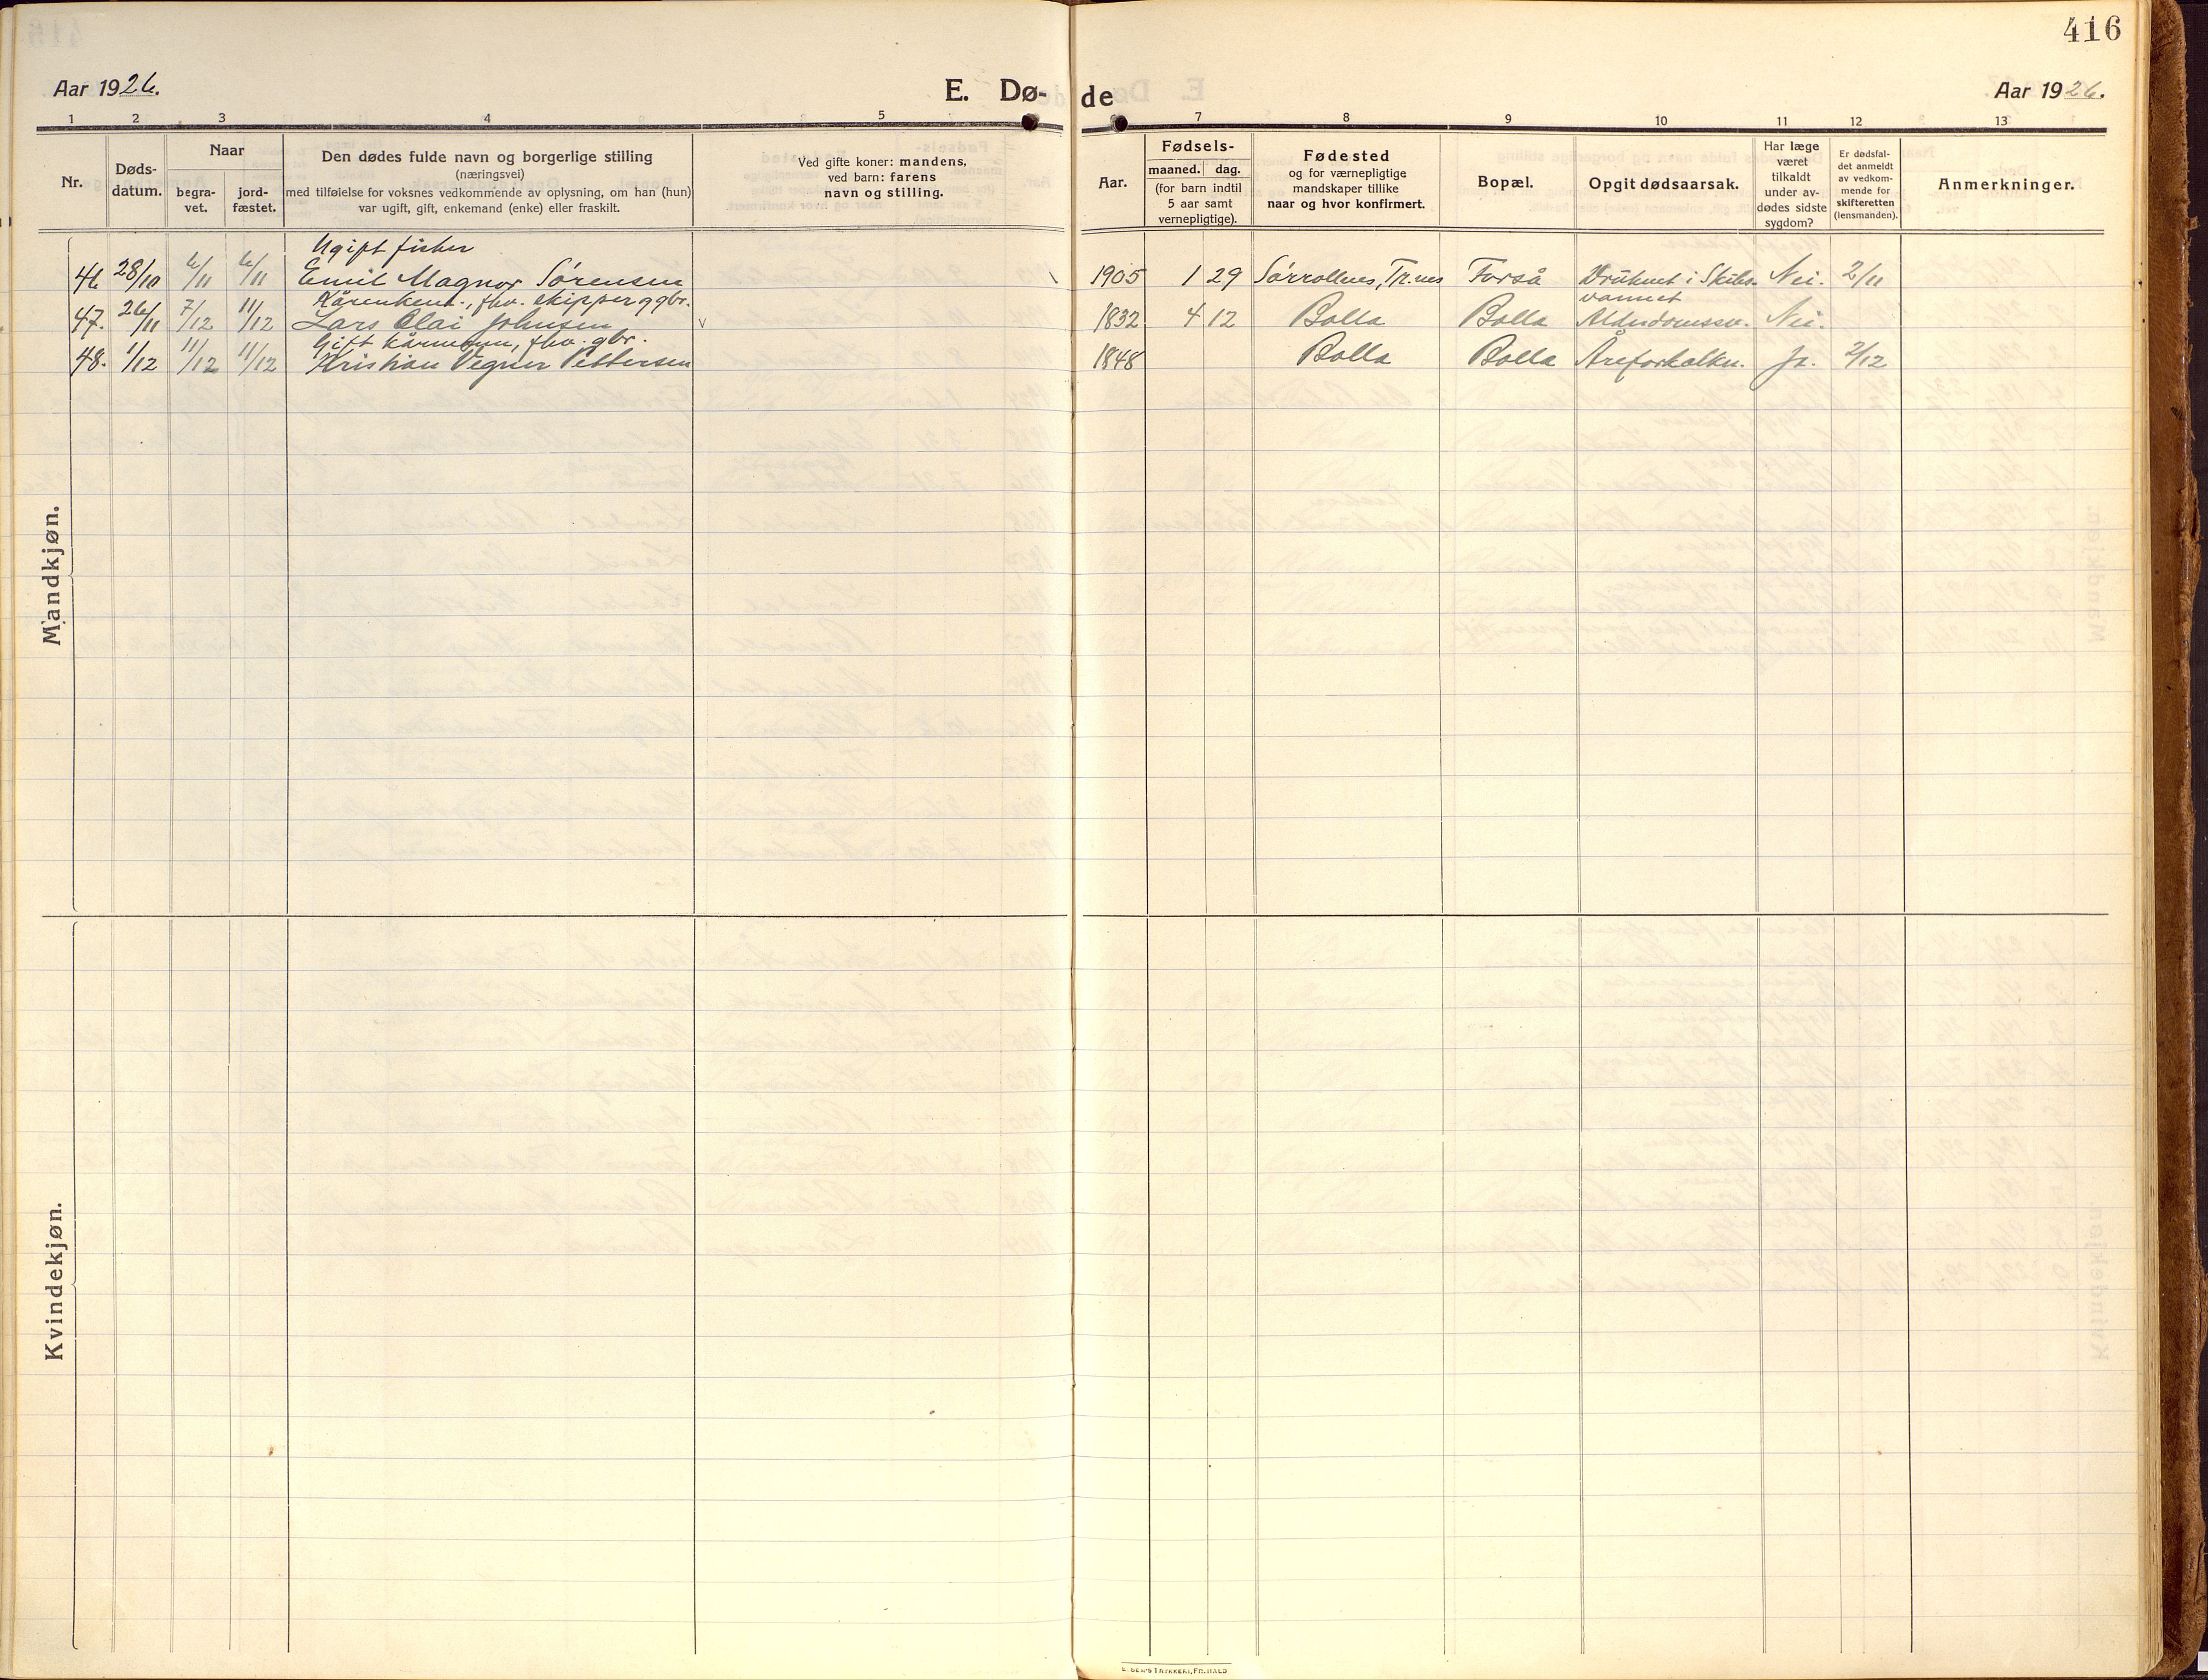 416
Aar 1926.
E. Dø-
de
Aar 1926.
1 2 3 4 5 7 8 9 10 11 12 13
Nr.
Døds-
datum.
Naar
begra-
vet.
jord-
fæstet.
Den dødes fulde navn og borgerlige stilling
(næringsvei)
med tilføielse for voksnes vedkommende av oplysning, om han (hun)
var ugift, gift, enkemand (enke) eller fraskilt.
Ved gifte koner: mandens,
ved barn: farens
navn og stilling.
Aar.
Fødsels-
maaned. dag.
(for barn indtil
5 aar samt
vernepligtige).
Fødested
og for værnepligtige
mandskaper tillike
naar og hvor konfirmert.
Bopæl.
Opgit dødsaarsak.
Har læge
været
tilkaldt
under av-
dødes sidste
sygdom?
Er dødsfal-
det anmeldt
av vedkom-
mende for
skifteretten
(lensmanden).
Anmerkninger.
Ugift fisker
46 28/10 6/11 6/11 Emil Magnor Sørensen 1905 1 29 Sørrollnes, Tr.nes Forså Druknet i Skibs- Nei. 2/11
vannet
Kårenkem., fhv. skipper g gbr.
47. 26/11 7/12 11/12 Lars Olai Johnsen v 1832 4 12 Bolla Bolla Alderdomssv. Nei.
Gift kårmann, fhv. gbr.
48. 1/12 11/12 11/12 Kristian Vegner Pettersen 1848 Bolla Bolla Åreforkalkn. Ja. 2/12
Mandkjøn.
Kvindekjøn.